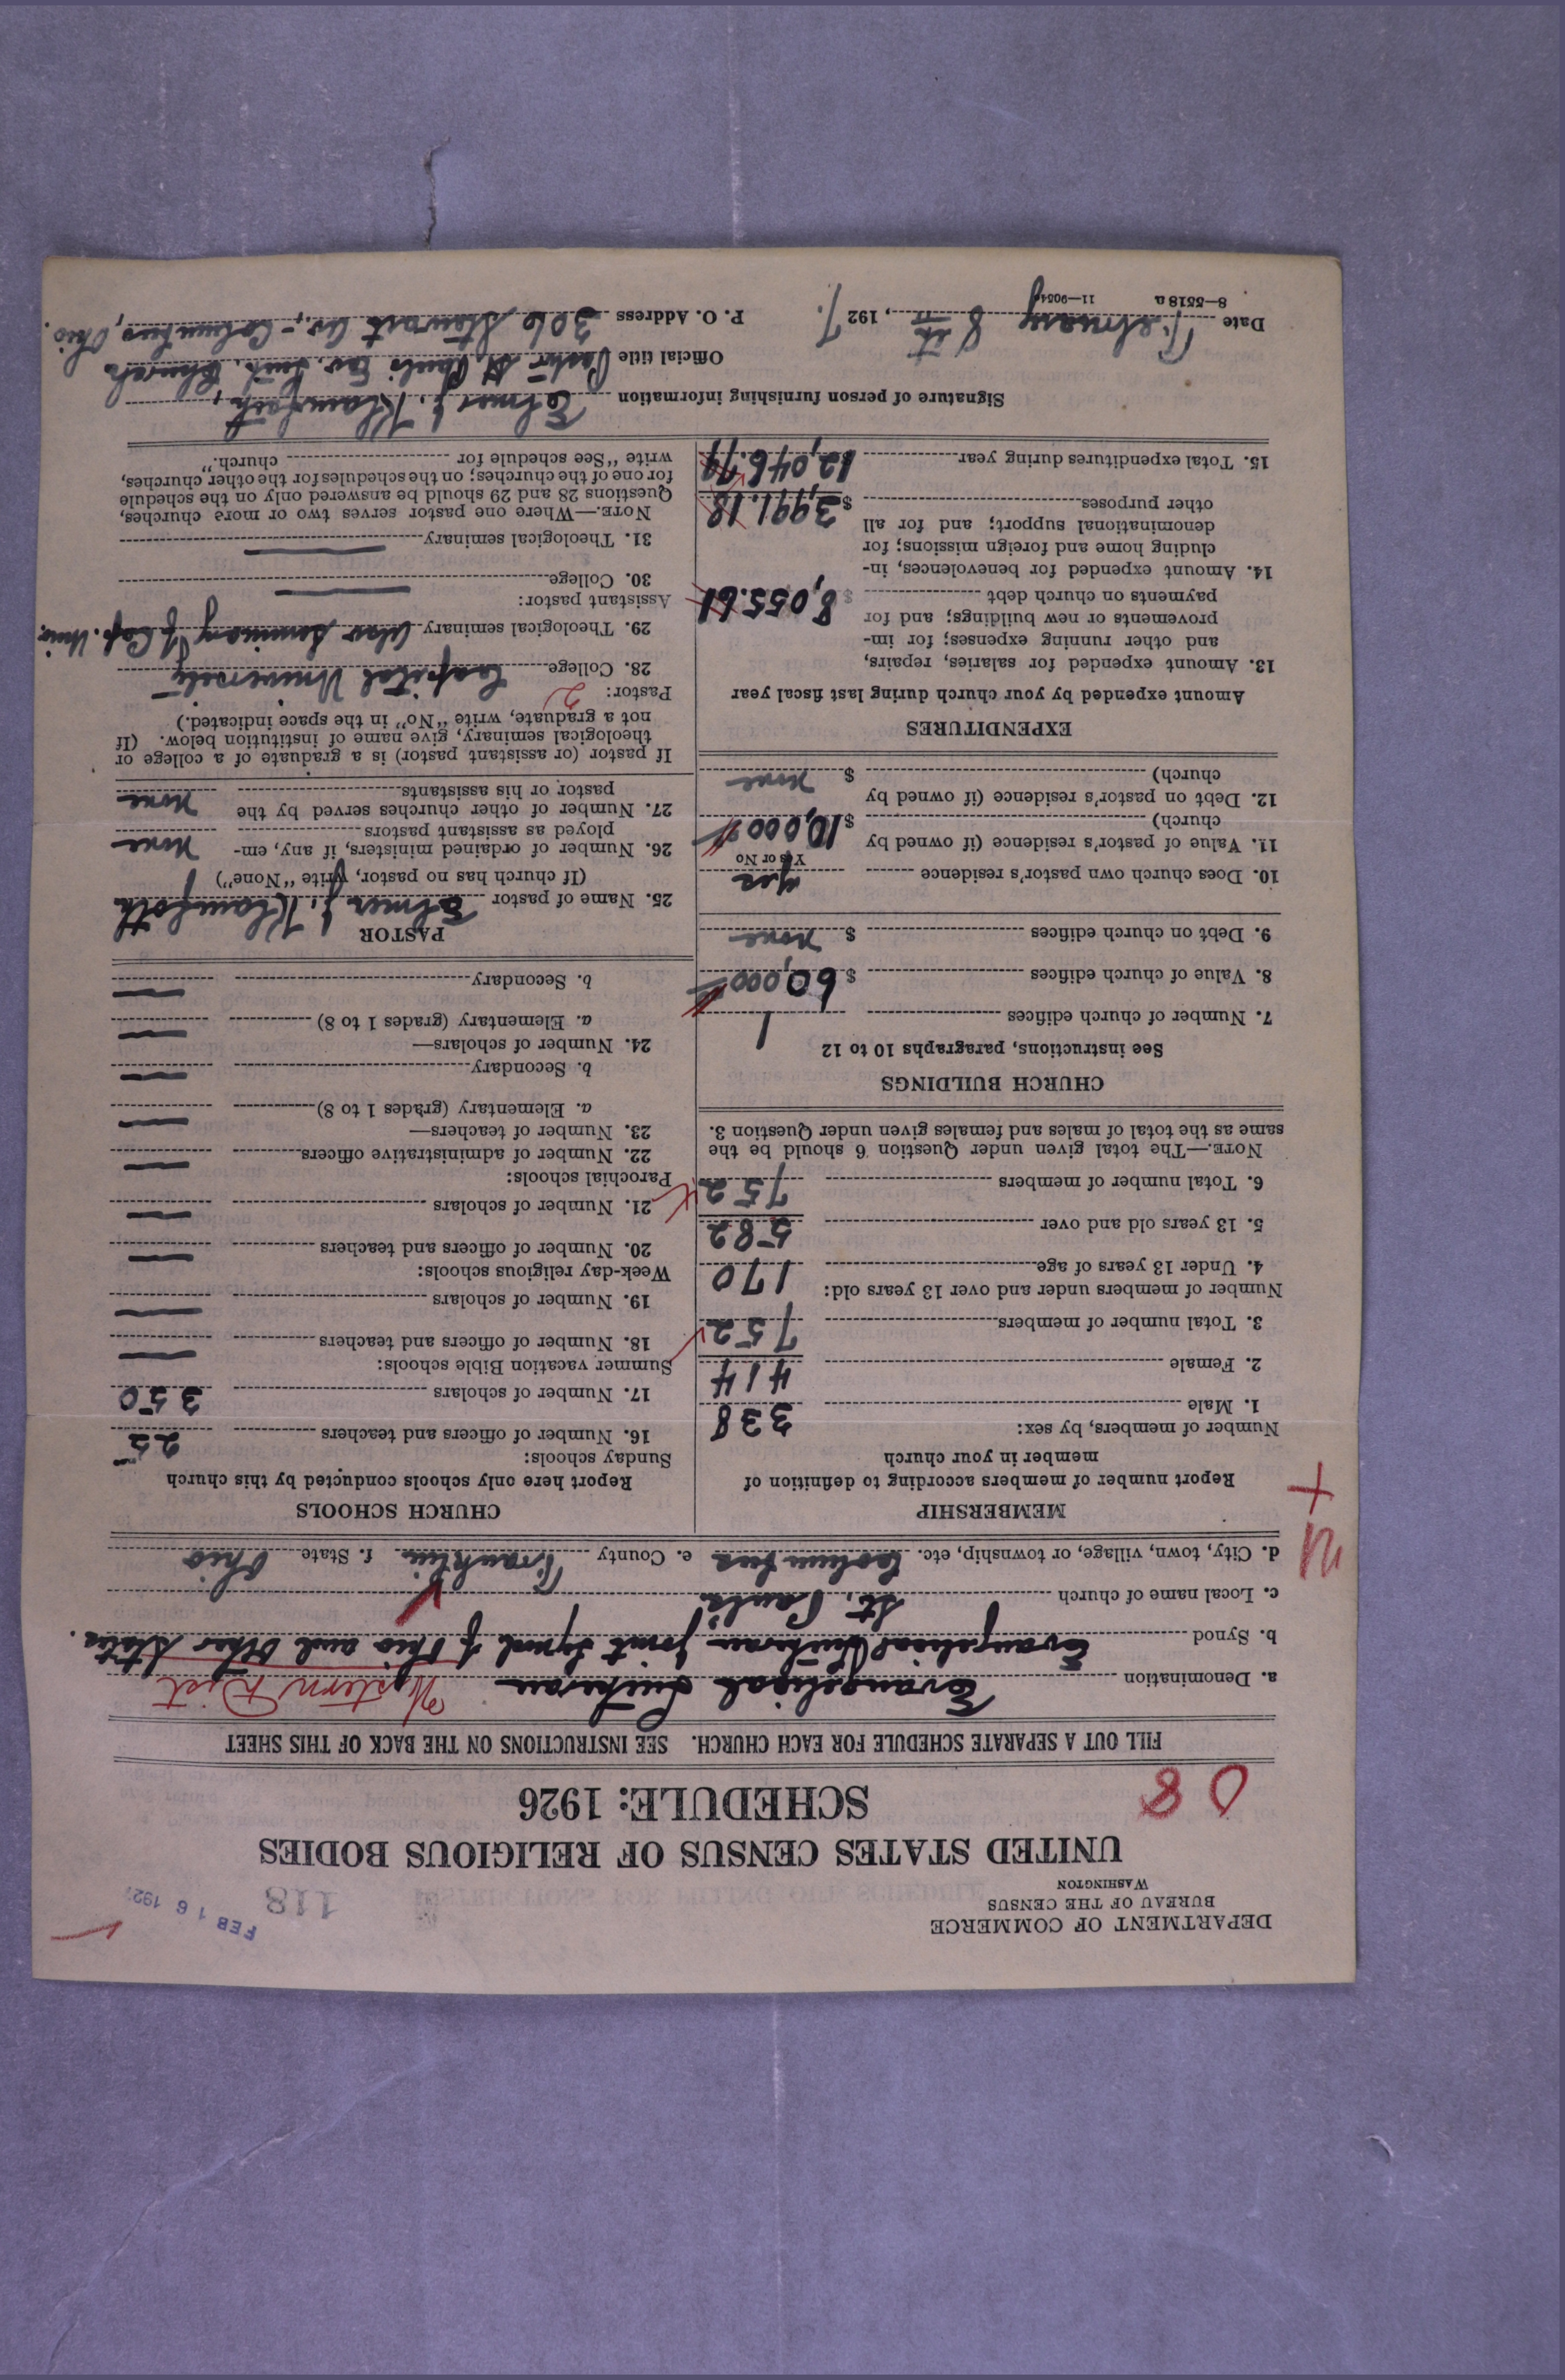 DEPARTMENT OF COMMERCE
BUREAU OF THE CENSUS
WASHINGTON
118
FEB 16 192
UNITED STATES CENSUS OF RELIGIOUS BODIES
SCHEDULE: 1926
08
FILL OUT A SEPARATE SCHEDULE FOR EACH CHURCH. SEE INSTRUCTIONS ON THE BACK OF THIS SHEET
a. Denomination Evangelical Lutheran Western Dist
b. Synod Evangelical Lutheran Joint Synod of Ohio and Other States.
c. Local name of church St. Paul's
d. City, town, village, or township, etc. Columbus e. County Franklin f. State Ohio
MEMBERSHIP
Report number of members according to definition of
member in your church
Number of members, by sex:
1. Male 338
2. Female 414
3. Total number of members 752
Number of members under and over 13 years old:
4. Under 13 years of age 170
5. 13 years old and over 582
6. Total number of members 752
NOTE.—The total given under Question 6 should be the
same as the total of males and females given under Question 3.
CHURCH BUILDINGS
See instructions, paragraphs 10 to 12
7. Number of church edifices 1
8. Value of church edifices $ 60,000
9. Debt on church edifices $ none
10. Does church own pastor's residence yes
Yes or No
11. Value of pastor's residence (if owned by
church) $ 10,000
12. Debt on pastor's residence (if owned by
church) $ none
EXPENDITURES
Amount expended by your church during last fiscal year
13. Amount expended for salaries, repairs,
and other running expenses; for im-
provements or new buildings; and for
payments on church debt $ 8,055.61
14. Amount expended for benevolences, in-
cluding home and foreign missions; for
denominational support; and for all
other purposes $ 3,991.18
15. Total expenditures during year 12,046.79
CHURCH SCHOOLS
Report here only schools conducted by this church
Sunday schools:
16. Number of officers and teachers 25
17. Number of scholars 350
Summer vacation Bible schools:
18. Number of officers and teachers —
19. Number of scholars —
Week-day religious schools:
20. Number of officers and teachers —
21. Number of scholars —
Parochial schools:
22. Number of administrative officers —
23. Number of teachers—
a. Elementary (grades 1 to 8) —
b. Secondary —
24. Number of scholars—
a. Elementary (grades 1 to 8) —
b. Secondary —
PASTOR
25. Name of pastor Elmer J. Klamfoth
(If church has no pastor, write "None")
26. Number of ordained ministers, if any, em-
ployed as assistant pastors none
27. Number of other churches served by the
pastor or his assistants none
If pastor (or assistant pastor) is a graduate of a college or
theological seminary, give name of institution below. (If
not a graduate, write "No" in the space indicated.)
Pastor: 2
28. College Capital University
29. Theological seminary Seminary of Cap. Univ.
Assistant pastor:
30. College —
31. Theological seminary —
NOTE.—Where one pastor serves two or more churches,
Questions 28 and 29 should be answered only on the schedule
for one of the churches; on the schedules for the other churches,
write "See schedule for church."
Signature of person furnishing information Elmer J. Klamfoth,
Official title Pastor St. Paul's Ev. Luth. Church
Date February 8th, 1927. P. O. Address 306 Stewart Av., Columbus, Ohio.
8—5518 a